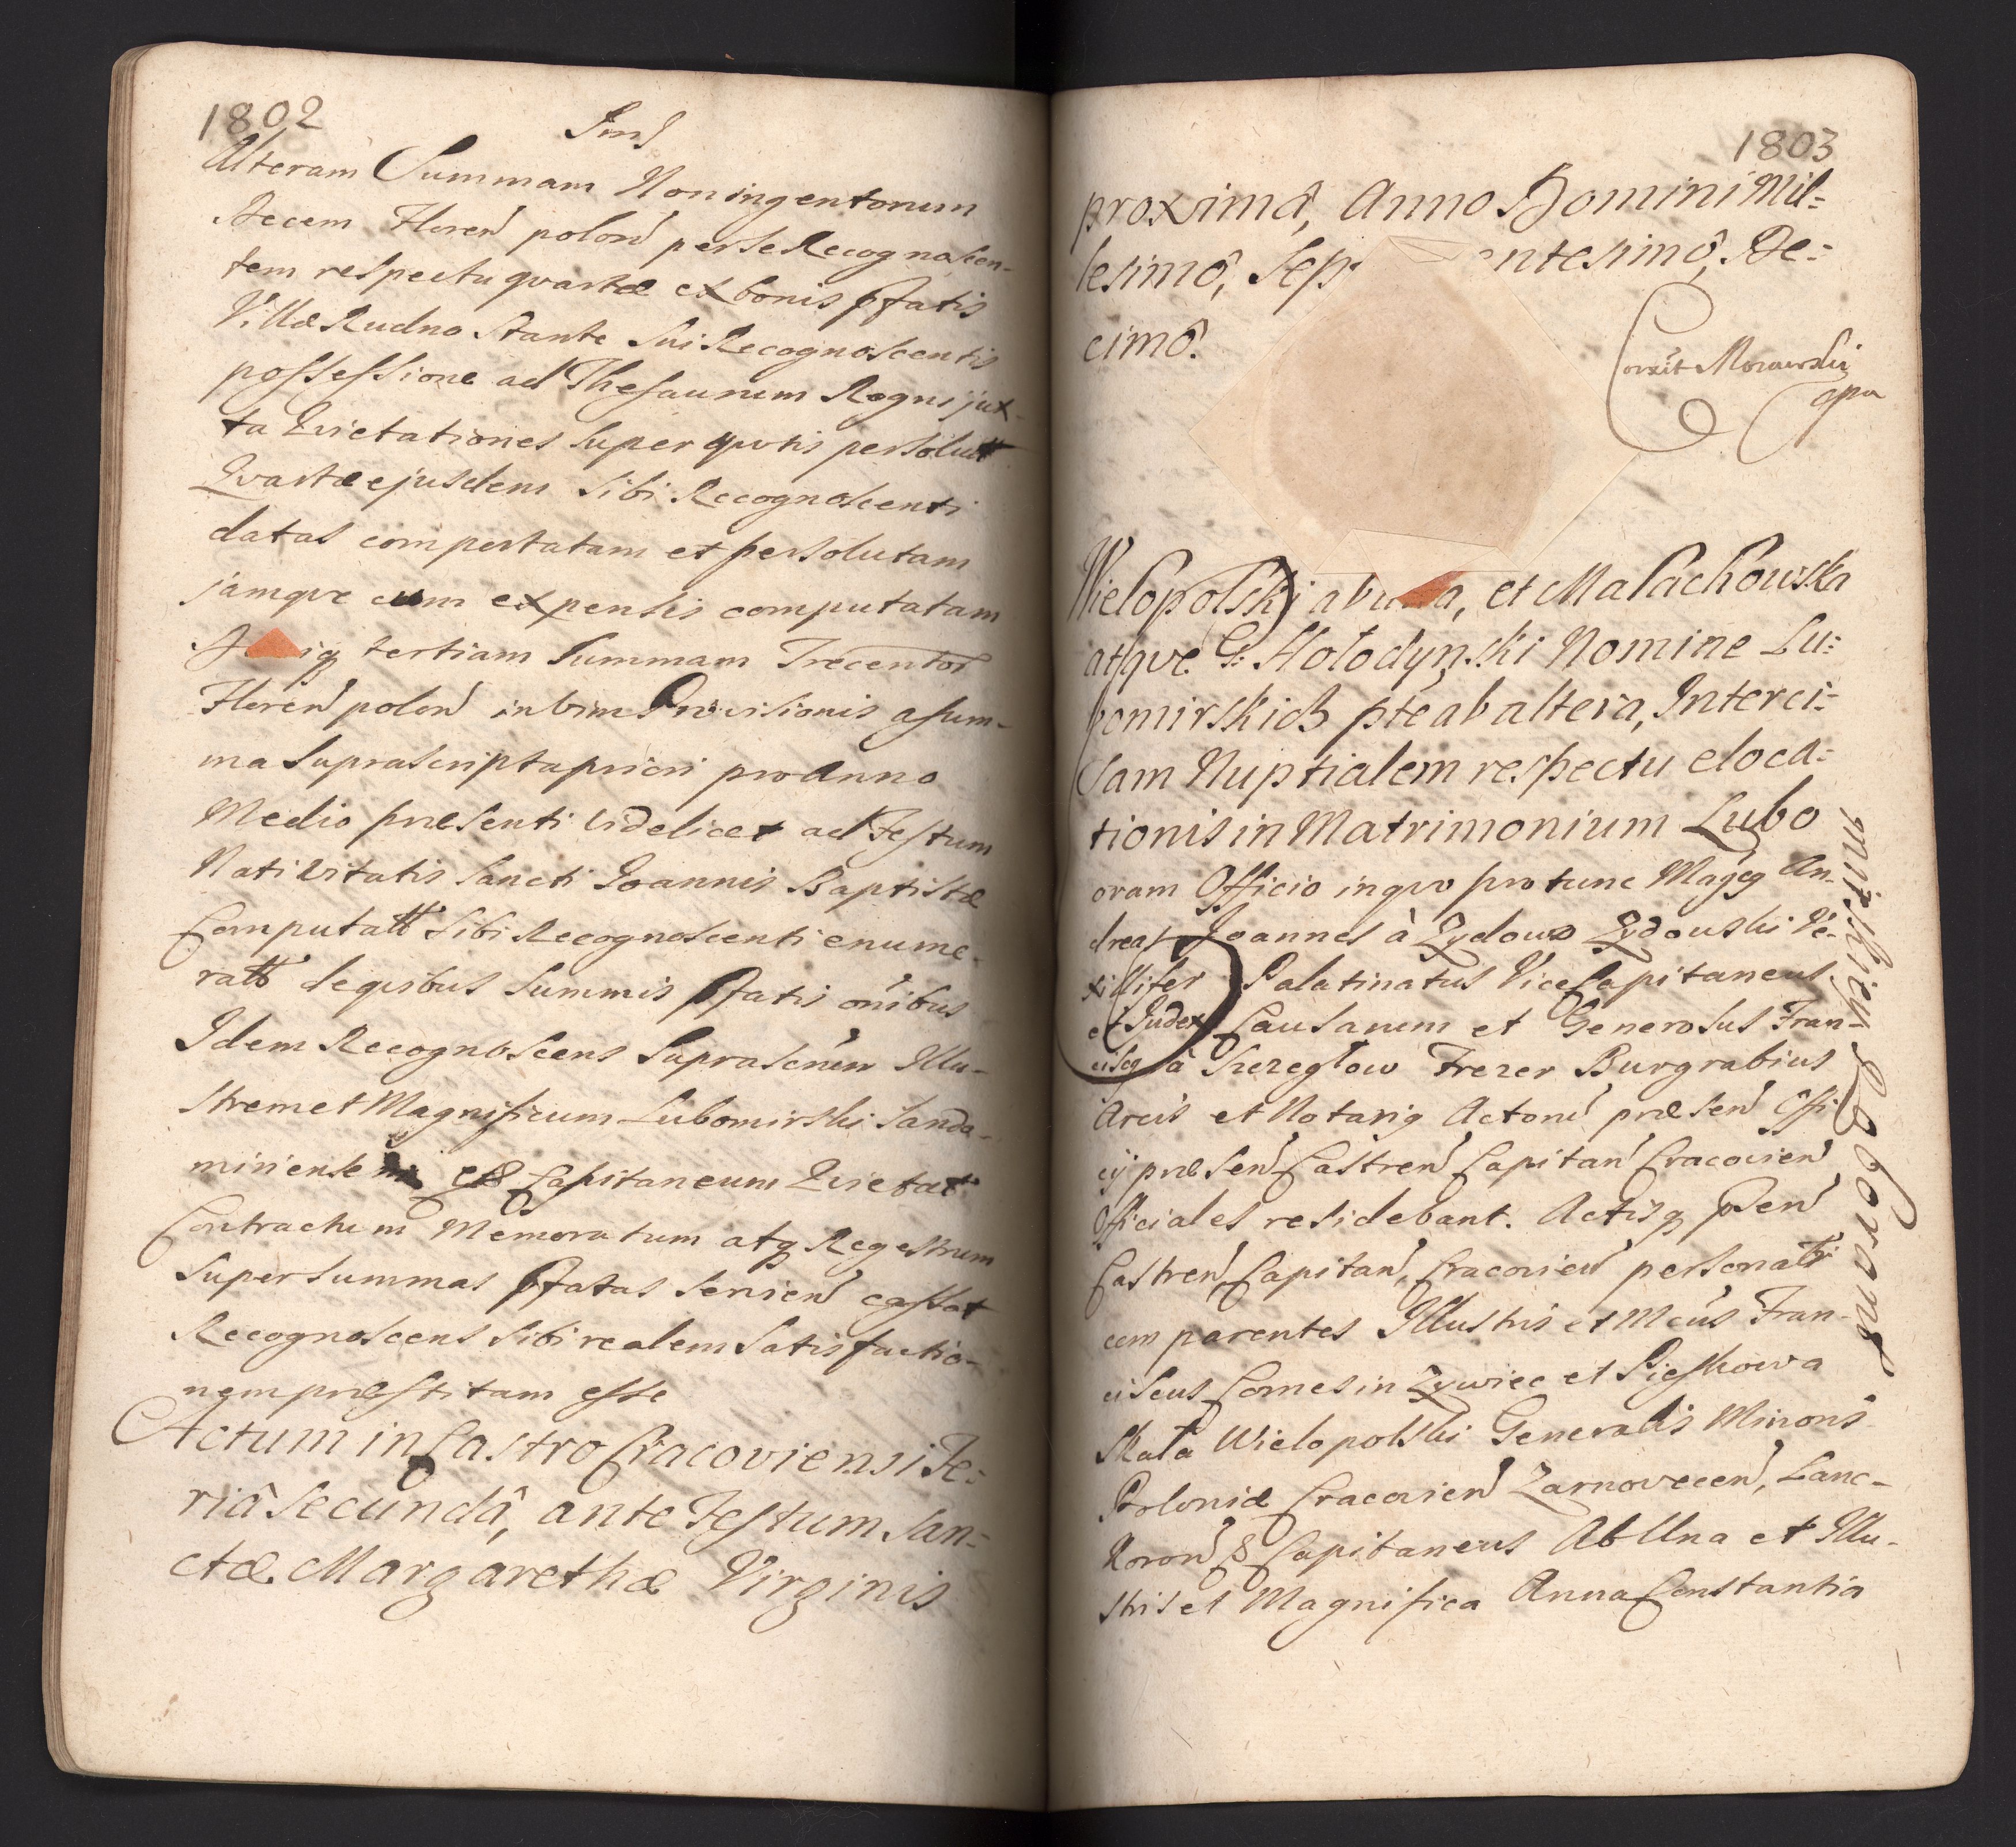 1802
Alteram Summam Noningentorum
Decem Floren polon per se Recognoscen-
tem respectu quartæ ex bonis pfatis
Villæ Rudno stante sui Recognoscentis
possessione ad Thesaurum Regni jux-
ta Qvietationes super qvotis persolutt
Qvartæ ejusdem sibi Recognoscenti
datas compertatam et persolutam
jamqve cum expensis computatam
tertiam summam Trecentor
Floren polon in vim Provisionis a sum-
ma suprascripta priori pro Anno
Medio præsenti videlicet ad Festum
Nativitatis Sancti Joannis Baptistæ
Computatt sibi Recognoscenti enume-
ratt de qvibus summis pfatis oñibus
Idem Recognoscens suprascrum Illu-
strem et Magnificum Lubomirski Sando-
miriensem Capitaneum Qvietat
Contractum Memoratum atq Regestrum
super summas pfatas servien cassat
Recognoscens sibi realem satisfactio-
nem præstitam esse
Actum in Castro Cracoviensi Fe:
riâ secundâ, ante Festum San-
ctæ Margarethæ Virginis
1803
proximâ, Anno Domini Mil:
lesimô, Sep ntesimô, De:
cimô.
Corrxit Morawski
mpa
Wielopolski ab una, et Małachowska
atqve G: Hołodyński Nomine Lu:
bomirskich pte ab altera, Interci:
sam Nuptialem respectu eloca:
tionis in Matrimonium Lubo
mirskiey Roborant
oram Officio in qvo pro tunc Magcg An-
dreas Joannes à Zydow Zydowski Ve-
xillifer Palatinatus ViceCapitaneus
et Judex Causarum et Generosus Fran-
ciscg à Srzegłow Frezer Burgrabius
Arcis et Notarig Actorum præsen Offi-
cij præsen Castren Capitan Cracovien
Officiales residebant. Actisq psen
Castren Capitan, Cracovien personalr
comparentes Illustris et Mcus Fran-
ciscus Comes in Zywiec et Pieskowa
Skała Wielopolski Generalis Minoris
Poloniæ Cracovien Zarnovecen, Lanc-
Koron & Capitaneus Ab Una et Illu-
stris et Magnifica Anna Constantia